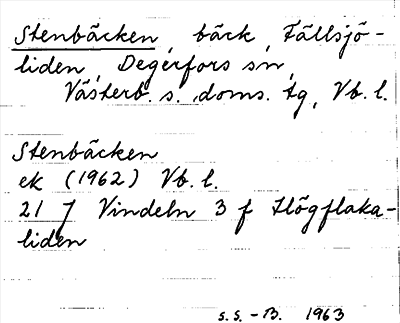 Stenbäcken, bäck, Fällsjö-
liden, Degerfors sn,
Västerb. s. doms. tg, Vb. l.
Stenbäcken
ek (1962) Vb. l.
21 J Vindeln 3 f Högflaka-
liden
s.s. - B. 1963